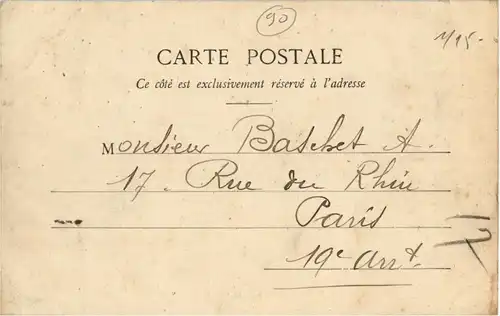 90
1/15-
CARTE POSTALE
Ce côté est exclusivement réservé à l'adresse
Monsieur Baschet A.
17. Rue du Rhin
Paris
19e Arrt.